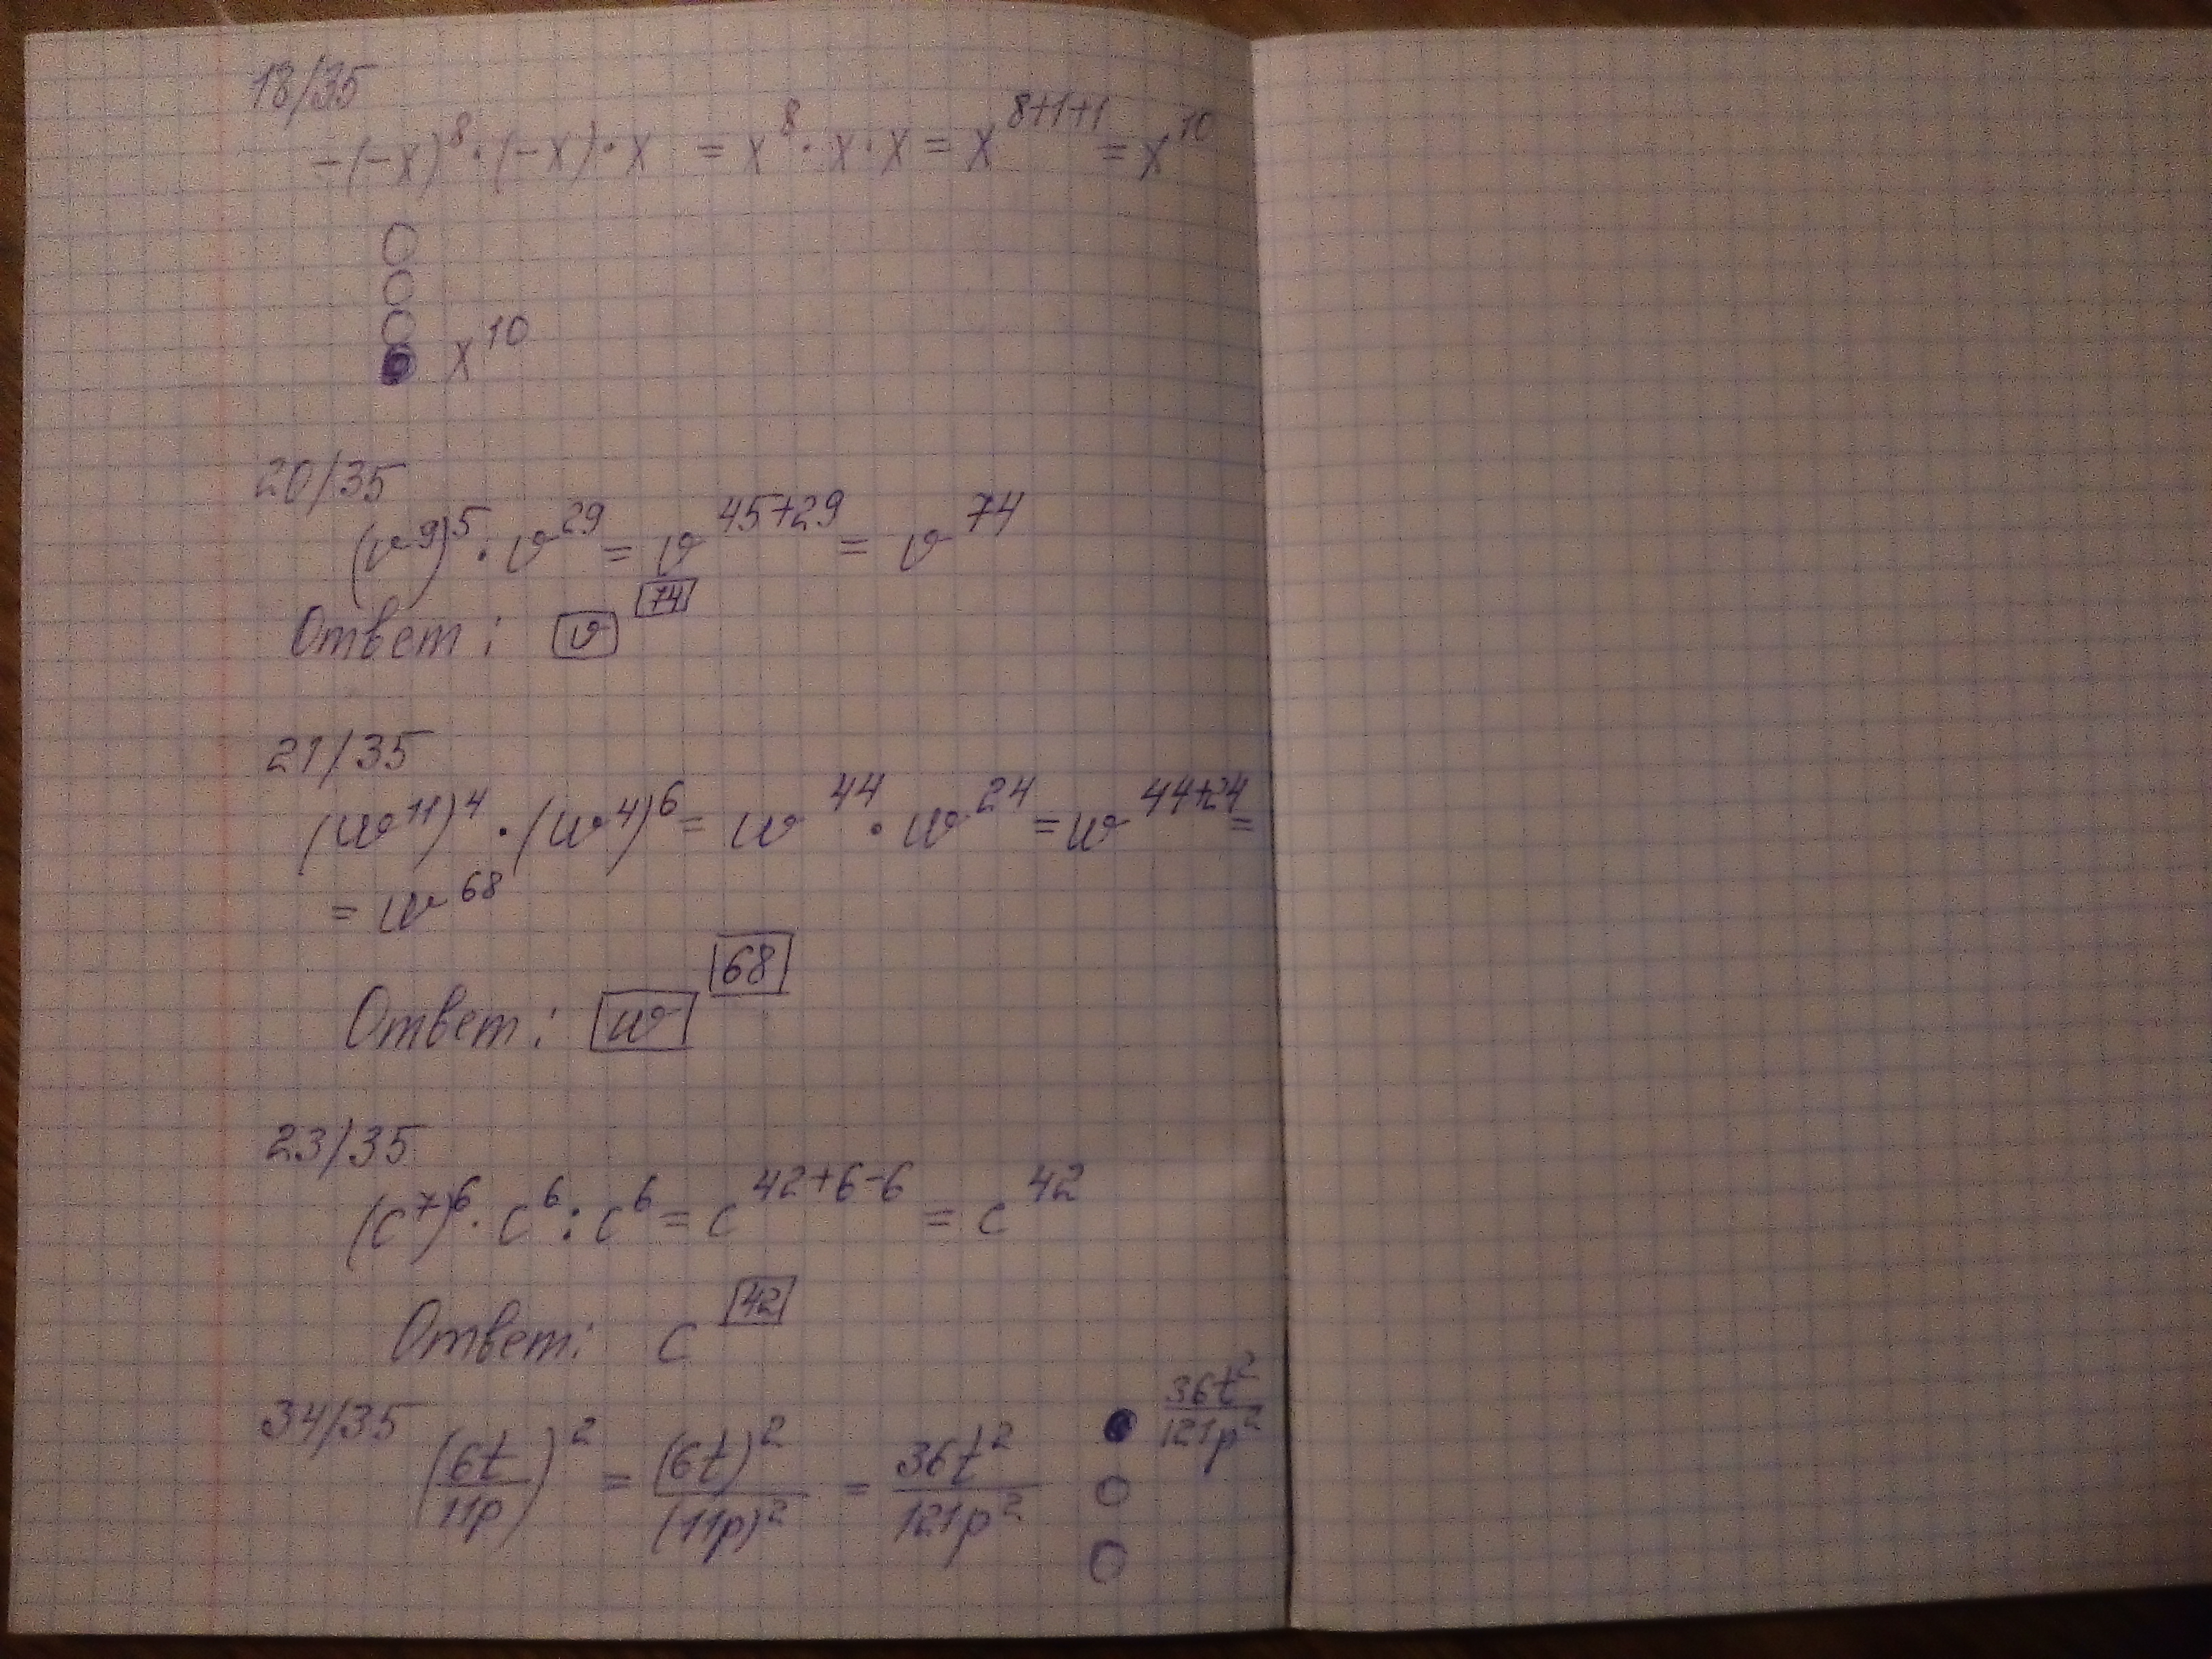 18/35
-(-x)⁸·(-x)·x = x⁸·x·x = x⁸⁺¹⁺¹ = x¹⁰
x¹⁰
20/35
(v⁹)⁵·v²⁹ = v⁴⁵⁺²⁹ = v⁷⁴
Ответ: v⁷⁴
21/35
(w¹¹)⁴·(w⁴)⁶ = w⁴⁴·w²⁴ = w⁴⁴⁺²⁴ =
= w⁶⁸
Ответ: w⁶⁸
23/35
(c⁷)⁶·c⁶:c⁶ = c⁴²⁺⁶⁻⁶ = c⁴²
Ответ: c⁴²
34/35 (6t/11p)² = (6t)²/(11p)² = 36t²/121p² 36t²/121p²